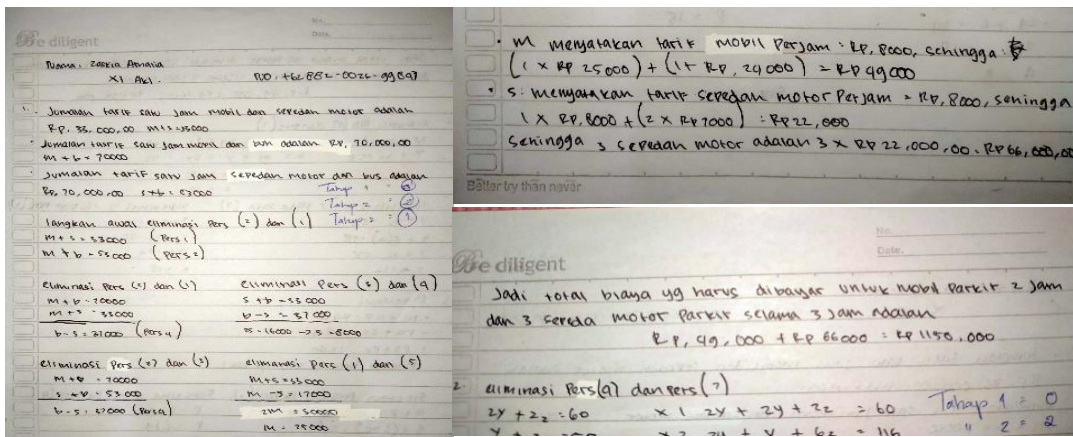 No.
Date.
Be diligent
Nama : Zaskia Amalia
XI Akl.
NO. +62 882-0026-9989
1. Jumalah tarif satu jam mobil dan sepedah motor adalah
Rp. 35.000,00 m+s=35000
Jumalah tarif satu jam mobil dan bus adalah Rp, 70,000,00
m + b = 70000
Jumalah tarif satu jam sepedah motor dan bus adalah
Rp, 70,000,00 s+b = 53000
Tahap 1 = 
Tahap 2 = 2
Tahap 2 = 1
langkah awal eliminasi Pers (2) dan (1)
m + s = 33000 (Pers 1)
m + b = 55000 (Pers 2)
eliminasi Pers (2) dan (1)
m + b = 70000
m + s = 35000
b - s = 37000 (Pers 4)
eliminasi Pers (3) dan (4)
s + b = 53 000
b - s = 37 000
2s = 16000 -> s = 8000
eliminasi Pers (2) dan (3)
m + b = 70000
s + b = 53 000
b - s = 27000 (Pers 4)
elimanasi pers (1) dan (5)
m + s = 33 000
m - s = 17000
2M = 50000
M = 25000
m menyatakan tarif mobil Perjam : Rp, 8000, sehingga :
(1 x Rp 25000) + (1 + Rp, 24000) = Rp 49000
s : menyatakan tarif sepedah motor Perjam = Rp, 8000, sehingga
1 x Rp, 8000 + (2 x Rp 7000) = Rp 22,000
sehingga 3 sepedah motor adalah 3 x Rp 22,000,00 = Rp 66,000,00
Better try than never
No.
Date.
Be diligent
Jadi total biaya yg harus dibayar untuk mobil parkir 2 jam
dan 3 sepeda motor parkir selama 3 jam adalah
Rp, 49,000 + Rp 66000 = Rp 1150.000
2. eliminasi Pers (4) dan pers (?)
2y + 2z = 60 x 1 2y + 2y + 2z = 60
Tahap 1 = 0
" 2 = 2